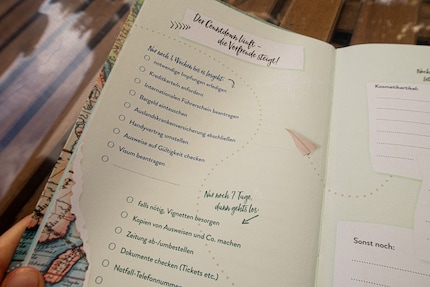 Der Countdown läuft –
die Vorfreude steigt!
Nur noch
bis es losgeht:
notwendige Impfungen erledigen
Kreditkarte/n anfordern
Internationalen Führerschein beantragen
Bargeld eintauschen
Auslandskrankenversicherung abschließen
Handyvertrag umstellen
Ausweise auf Gültigkeit checken
Visum beantragen
Nur noch 7 Tage,
dann geht's los:
falls nötig, Vignetten besorgen
Kopien von Ausweisen und Co. machen
Zeitung ab-/umbestellen
Dokumente checken (Tickets etc.)
Notfall-Telefonnummern
Kosmetikartikel:
Sonst noch: